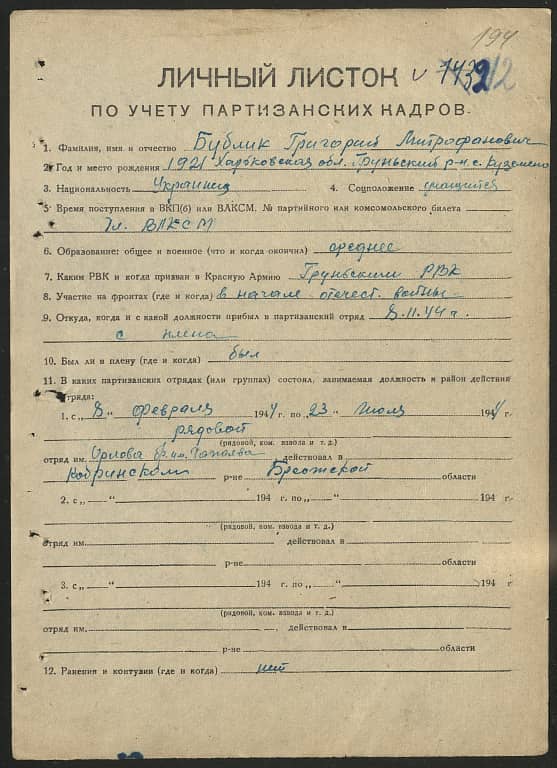 194
ЛИЧНЫЙ ЛИСТОК
212
ПО УЧЕТУ ПАРТИЗАНСКИХ КАДРОВ
1. Фамилия, имя и отчество Бублик Григорий Митрофанович
2. Год и место рождения 1921 Харьковская обл. Груньский р-н с. Куземено
3. Национальность Украинец 4. Соцположение учащийся
5. Время поступления в ВКП(б) или ВЛКСМ. № партийного или комсомольского билета
Чл. ВЛКСМ
6. Образование: общее и военное (что и когда окончил) среднее
7. Каким РВК и когда призван в Красную Армию Груньским РВК
8. Участие на фронтах (где и когда) в начале отечест. войны
9. Откуда, когда и с какой должности прибыл в партизанский отряд 8.II.44 г.
с плена
10. Был ли в плену (где и когда) был
11. В каких партизанских отрядах (или группах) состоял, занимаемая должность и район действия
отряда:
1. с „8" февраля 1944 г. по „23" июля 1944 г.
рядовой
(рядовой, ком. взвода и т. д.)
отряд им. Орлова бр. им. Чапаева действовал в
Кобринском р-не Брестской области
2. с „ " 194 г. по „ " 194 г.
(рядовой, ком. взвода и т. д.)
отряд им. действовал в
р-не области
3. с „ " 194 г. по „ " 194 г.
(рядовой, ком. взвода и т. д.)
отряд им. действовал в
р-не области
12. Ранения и контузии (где и когда) нет